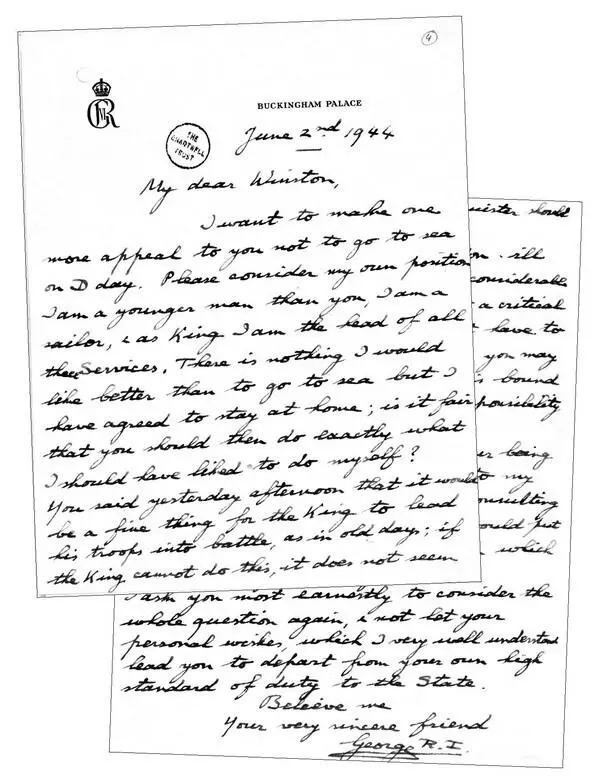 4
GRVI
BUCKINGHAM PALACE
THE
CHARTWELL
TRUST
June 2nd 1944
My dear Winston,
I want to make one
more appeal to you not to go to sea
on D day. Please consider my own position
I am a younger man than you, I am a
sailor, & as King I am the head of all
the Services. There is nothing I would
like better than to go to sea but I
have agreed to stay at home; is it fair
that you should then do exactly what
I should have liked to do myself?
You said yesterday afternoon that it would
be a fine thing for the King to lead
his troops into battle, as in old days; if
the King cannot do this, it does not seem
should
ill
considerable
a critical
have to
you may
bound
being
my
consulting
put
which
I ask you most earnestly to consider the
whole question again, & not let your
personal wishes, which I very well understand
lead you to depart from your own high
standard of duty to the State.
Believe me
Your very sincere friend
George R.I.